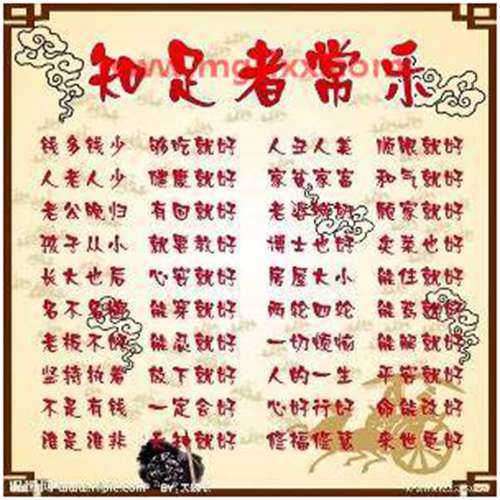 知足者常乐
钱多钱少 够吃就好 人丑人美 顺眼就好
人老人少 健康就好 家贫家富 和气就好
老公晚归 有回就好 老婆 顾家就好
孩子从小 就要教好 博士也好 卖菜也好
长大也后 心安就好 房屋大小 能住就好
名不名牌 能穿就好 两轮四轮 能驾就好
老板不好 能忍就好 一切烦恼 能解就好
坚持执着 放下就好 人的一生 平安就好
不是有钱 一定会好 心好行好 命能改好
谁是谁非 就好 修福修慧 来世更好